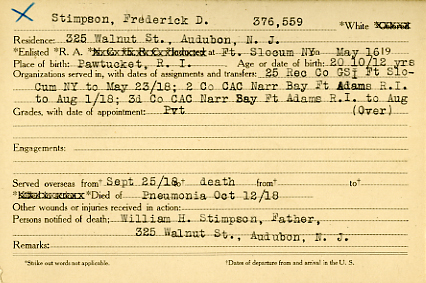 Stimpson, Frederick D. 376,559 *White *Colored
Residence: 325 Walnut St., Audubon, N. J.
*Enlisted *R. A. at Ft. Slocum NY on May 16 19
Place of birth: Pawtucket, R. I. Age or date of birth: 20 10/12 yrs
Organizations served in, with dates of assignments and transfers: 25 Rec Co GSI Ft Slo-
Cum NY to May 23/18; 2 Co CAC Narr Bay Ft Adams R.I.
to Aug 1/18; 3d Co CAC Narr Bay Ft Adams R.I. to Aug
Grades, with date of appointment: Pvt (Over)
Engagements:
Served overseas from† Sept 25/18 to† death from† to†
* *Died of Pneumonia Oct 12/18
Other wounds or injuries received in action:
Persons notified of death: William H. Stimpson, Father,
325 Walnut St., Audubon, N. J.
Remarks:
*Strike out words not applicable. †Dates of departure from and arrival in the U. S.